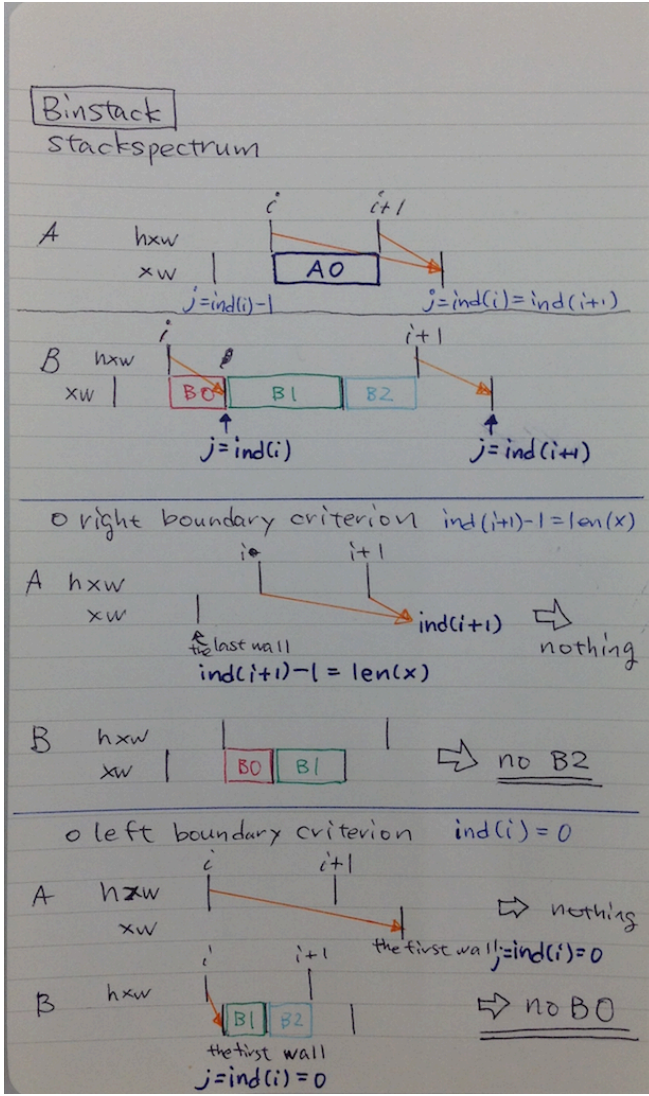 Binstack
stackspectrum
i i+1
A hxw
xw A0
j=ind(i)-1 j=ind(i)=ind(i+1)
i i+1
B hxw
xw B0 B1 B2
j=ind(i) j=ind(i+1)
o right boundary criterion ind(i+1)-1=len(x)
i i+1
A hxw
xw ind(i+1) ⇨
the last wall nothing
ind(i+1)-1=len(x)
B hxw
xw B0 B1 ⇨ no B2
o left boundary criterion ind(i)=0
i i+1
A hxw ⇨ nothing
xw
the first wall j=ind(i)=0
i i+1
B hxw ⇨ no B0
B1 B2
the first wall
j=ind(i)=0